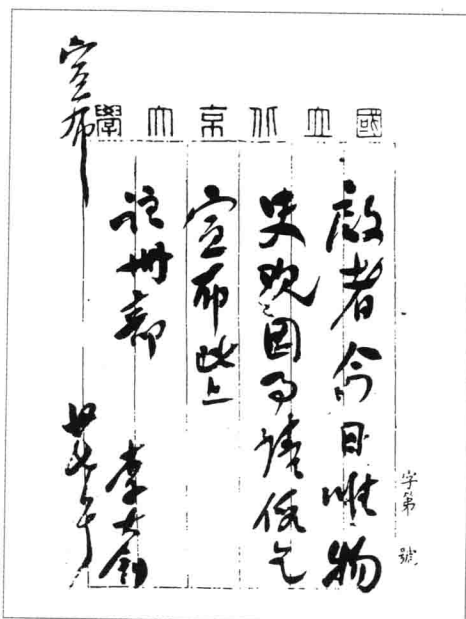 國立北京大學
字第　號
啟者今日唯物
史观因事請假乞
宣布此上
註冊部
李大釗
宣布